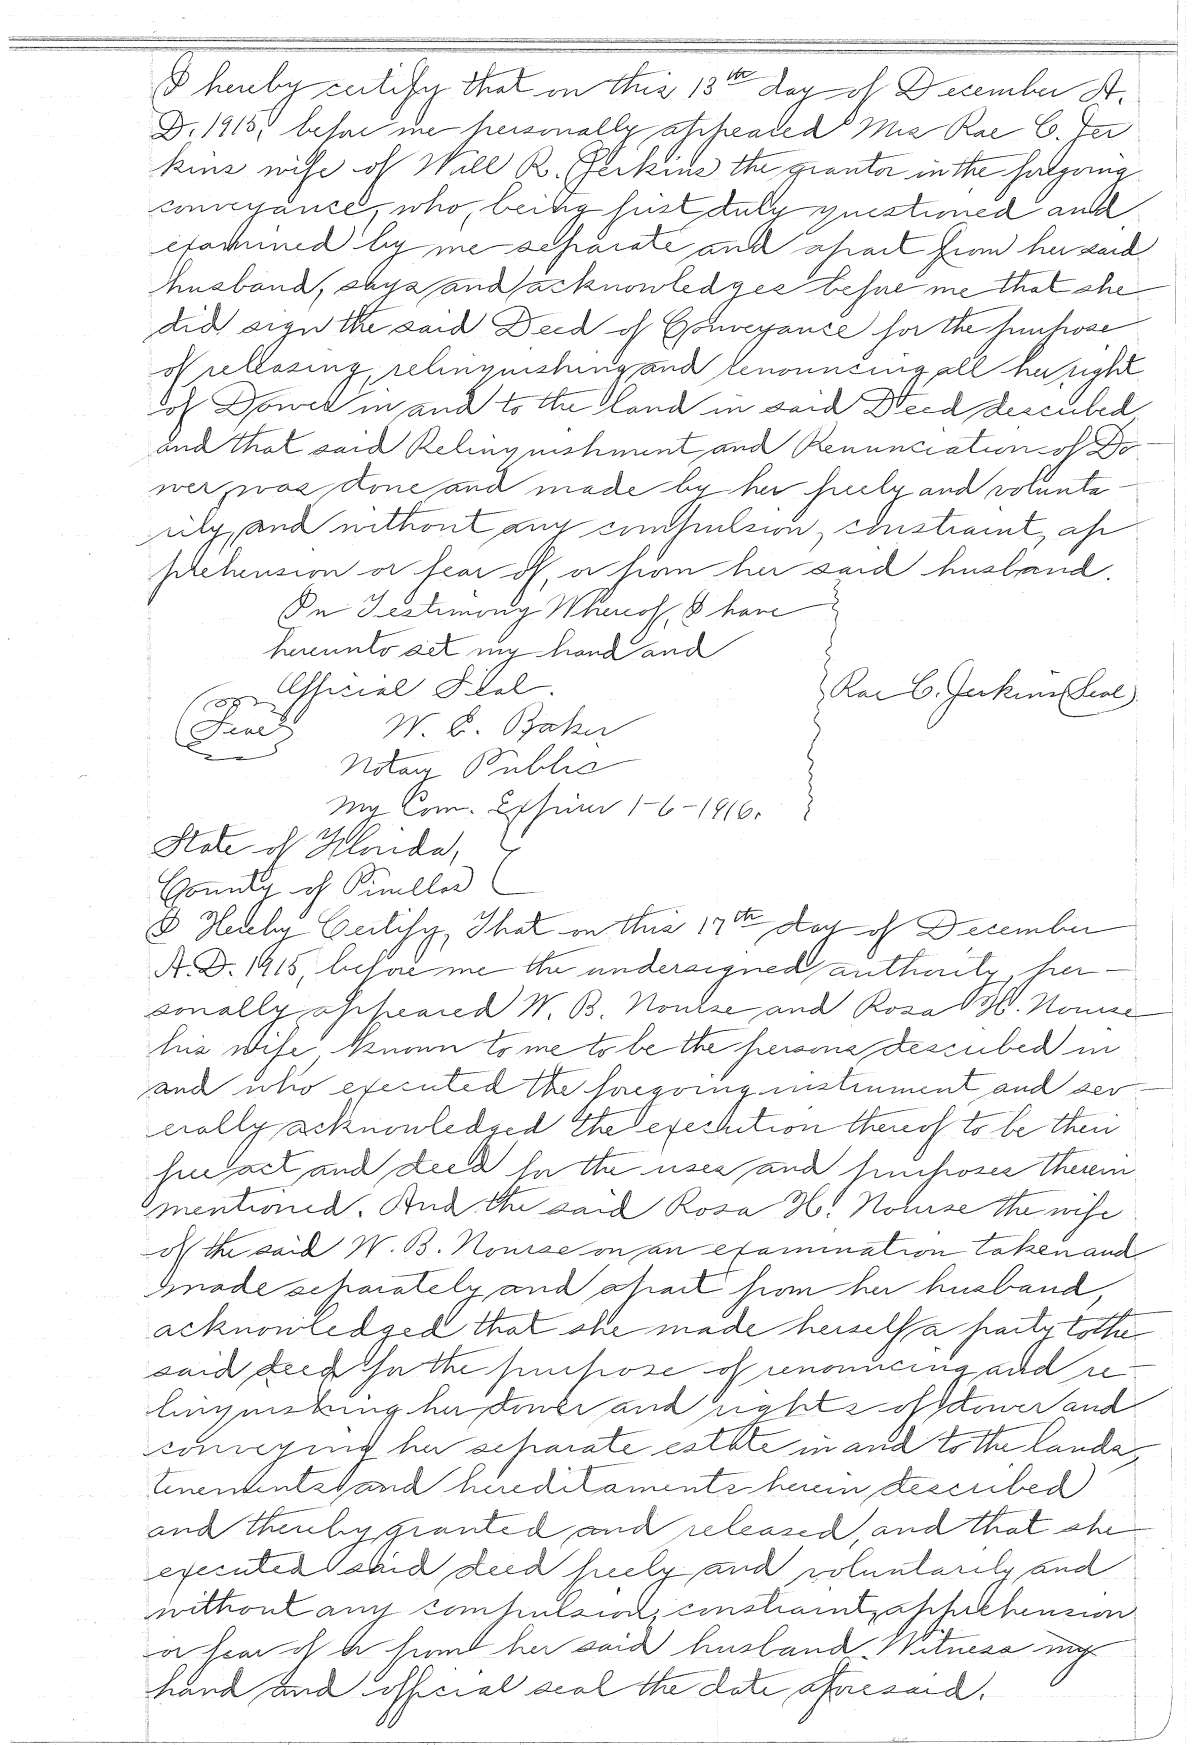 I hereby certify that on this 13th day of December A.
D. 1915, before me personally appeared Mrs Rae C. Jer
kins wife of Will R. Jerkins the grantor in the foregoing
conveyance, who, being first duly questioned and
examined by me separate and apart from her said
husband, says and acknowledges before me that she
did sign the said Deed of Conveyance for the purpose
of releasing, relinquishing and renouncing all her right
of Dower in and to the land in said Deed described,
and that said Relinquishment and Renunciation of Do
wer, was done and made by her freely and volunta-
rily, and without any compulsion, constraint, ap
prehension or fear of, or from her said husband.
In Testimony Whereof, I have
hereunto set my hand and
Official Seal.
Rae C. Jerkins (Seal)
Seal
W. E. Baker
Notary Public
My Com. Expires 1-6-1916.
State of Florida,
County of Pinellas
I Hereby Certify, That on this 17th day of December
A. D. 1915, before me the undersigned authority, per-
sonally appeared W. B. Nourse and Rosa H. Nourse
his wife, known to me to be the persons described in
and who executed the foregoing instrument and sev-
erally acknowledged the execution thereof to be their
free act and deed for the uses and purposes therein
mentioned. And the said Rosa H. Nourse the wife
of the said W. B. Nourse on an examination taken and
made separately and apart from her husband,
acknowledged that she made herself a party to the
said deed for the purpose of renouncing and re-
linquishing her dower and rights of dower and
conveying her separate estate in and to the lands,
tenements and hereditaments herein described
and thereby granted and released, and that she
executed said deed freely and voluntarily and
without any compulsion, constraint, apprehension
or fear of or from her said husband. Witness my
hand and official seal the date aforesaid.